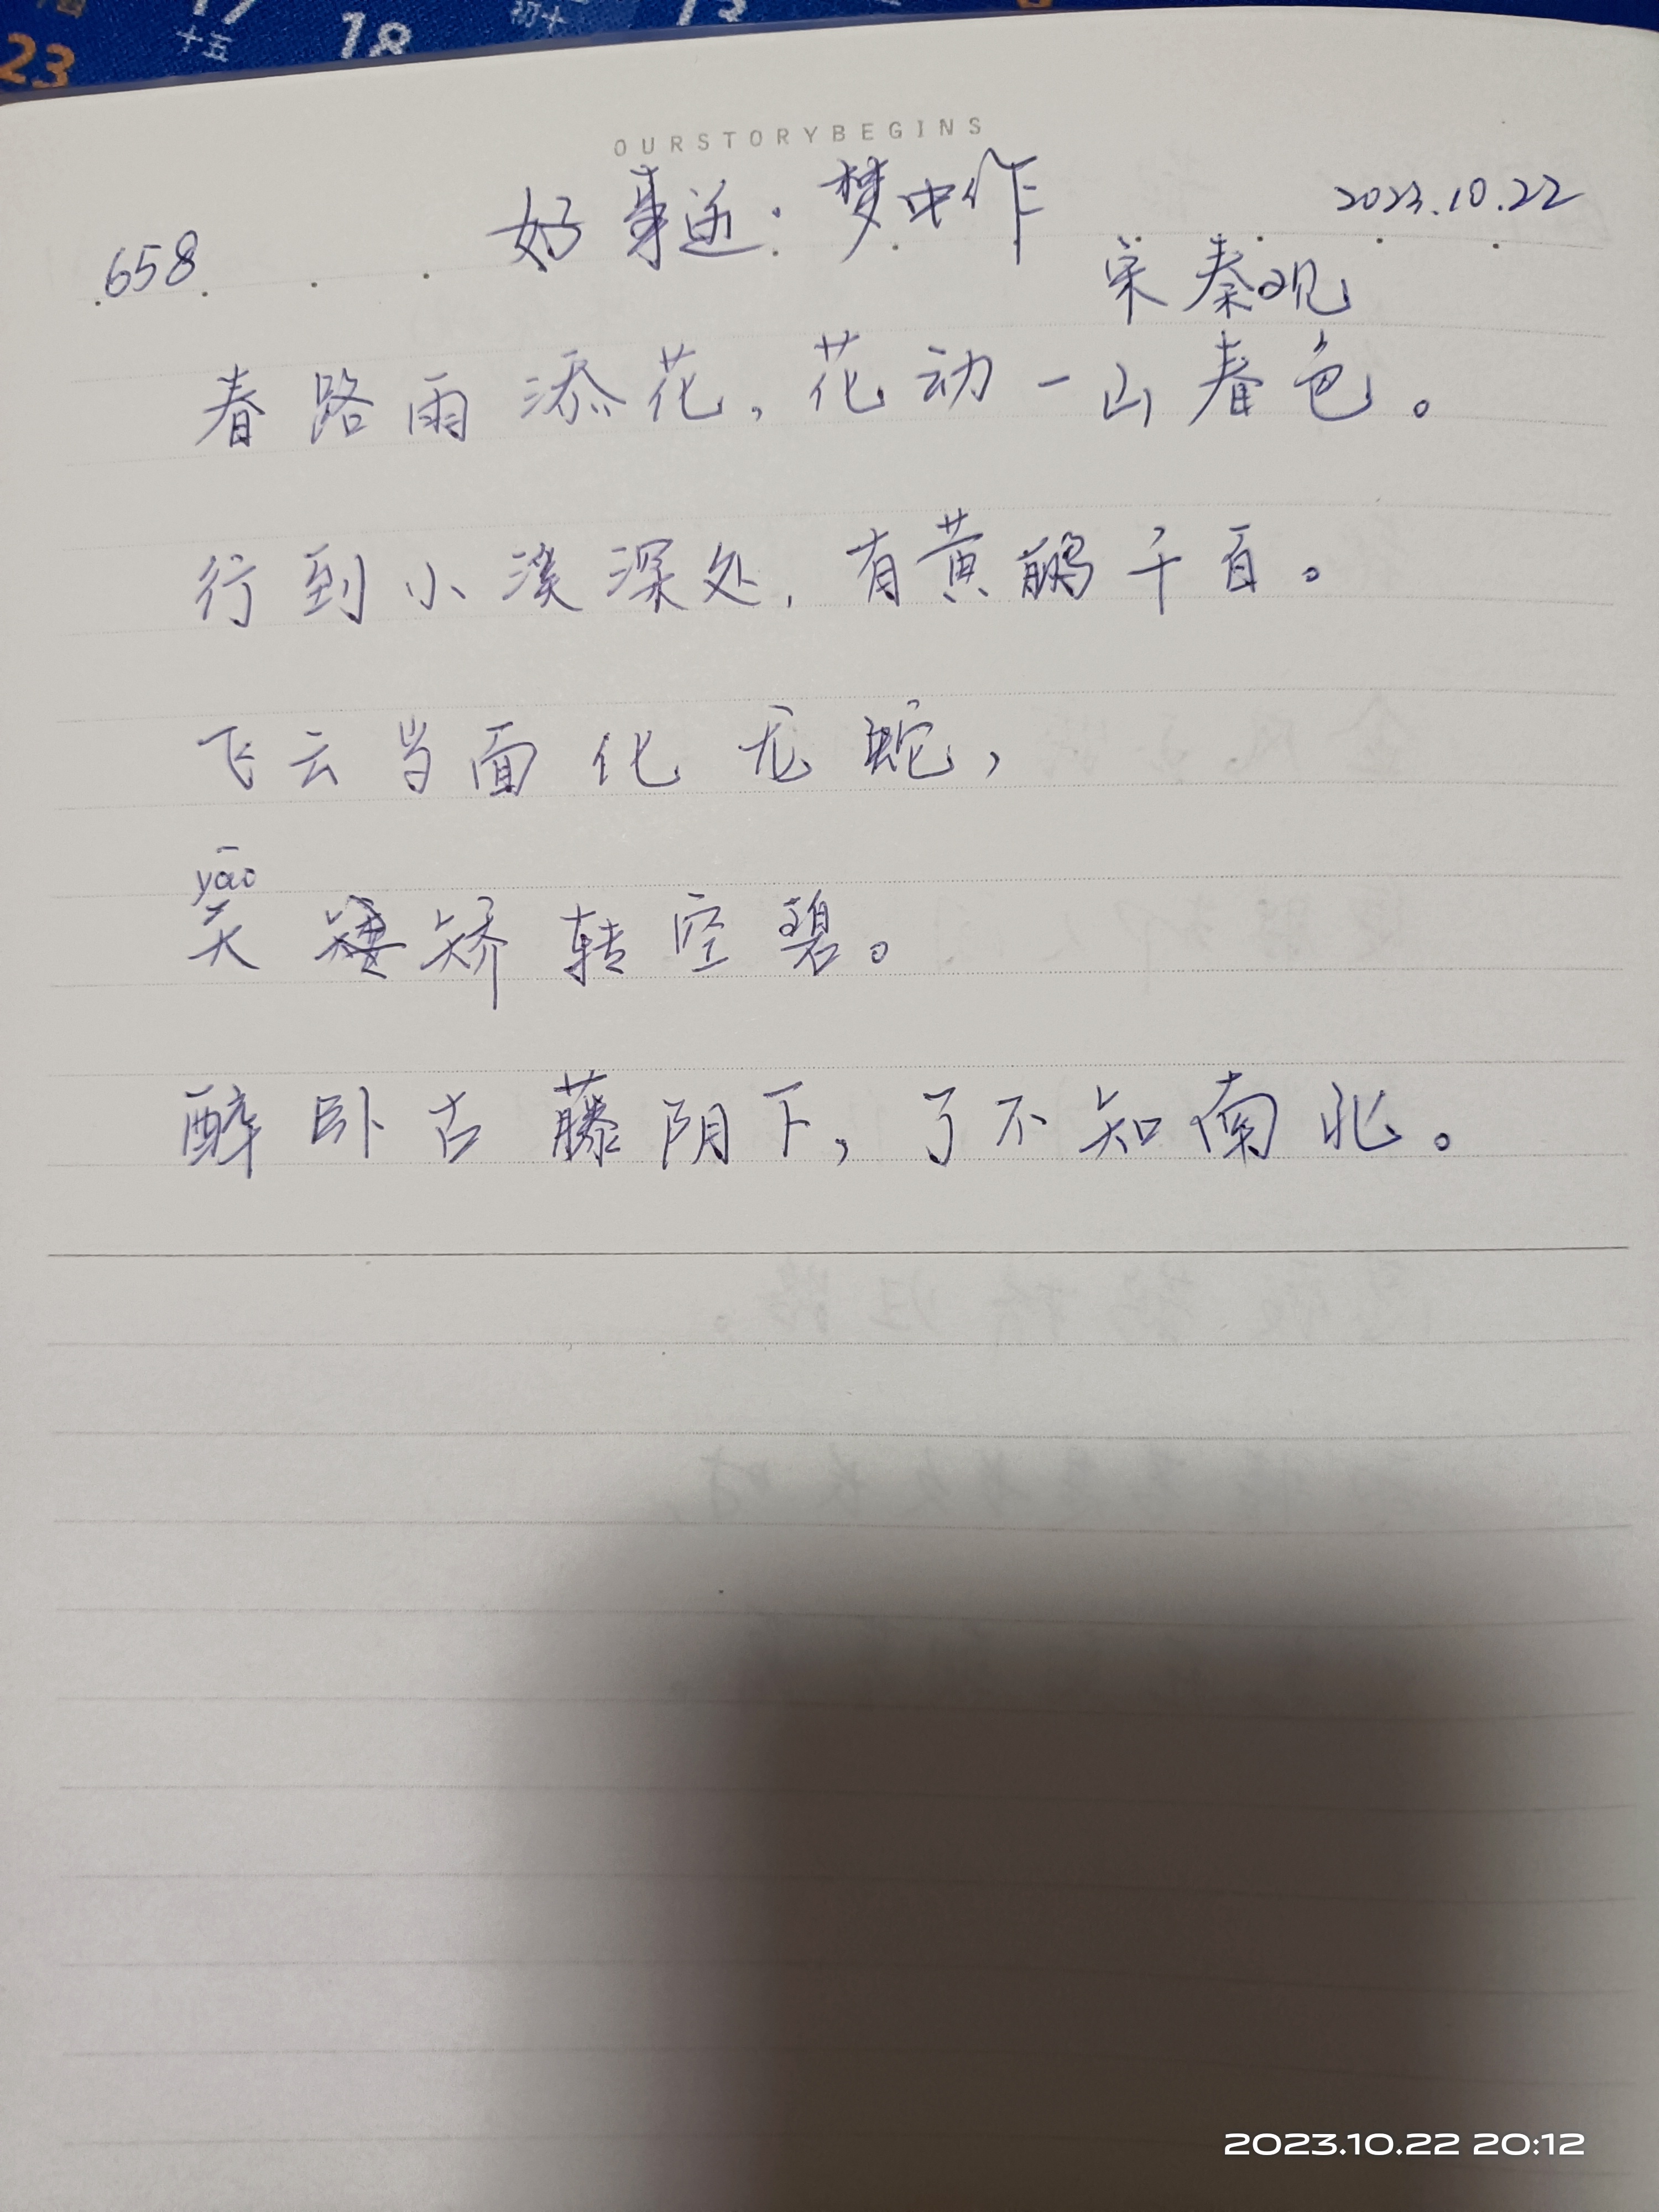 23
十五
18
初十
OURSTORYBEGINS
658
好事近·梦中作
2023.10.22
宋 秦观
春路雨添花，花动一山春色。
行到小溪深处，有黄鹂千百。
飞云当面化龙蛇，
yāo
夭矫转空碧。
醉卧古藤阴下，了不知南北。
2023.10.22 20:12